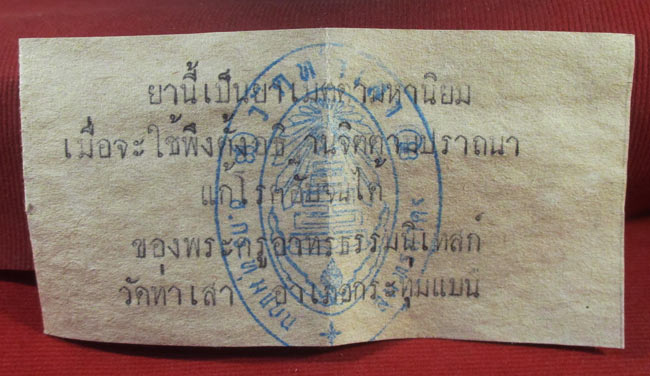 ยานี้เป็นยาเมตตามหานิยม
เมื่อจะใช้พึงตั้งอธิฐานจิตตามปราถนา
แก้โรคภัยจนได้
ของพระครูอาทรธรรมนิเทสก์
วัดท่าเสา อำเภอกระทุ่มแบน